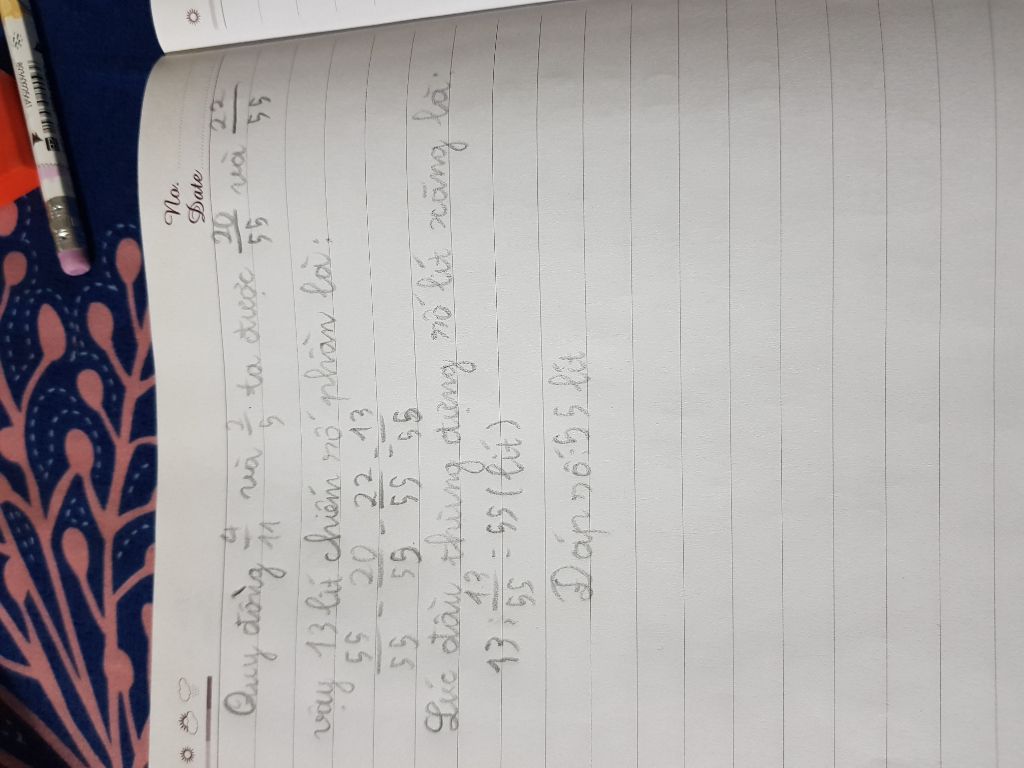 No.
Date
Quy đồng 4/11 và 2/5 ta được 20/55 và 22/55
vậy 13 lít chiếm số phần là:
55/55 - 20/55 - 22/55 = 13/55
Lúc đầu thùng đựng số lít xăng là:
13 : 13/55 = 55 (lít)
Đáp số: 55 lít